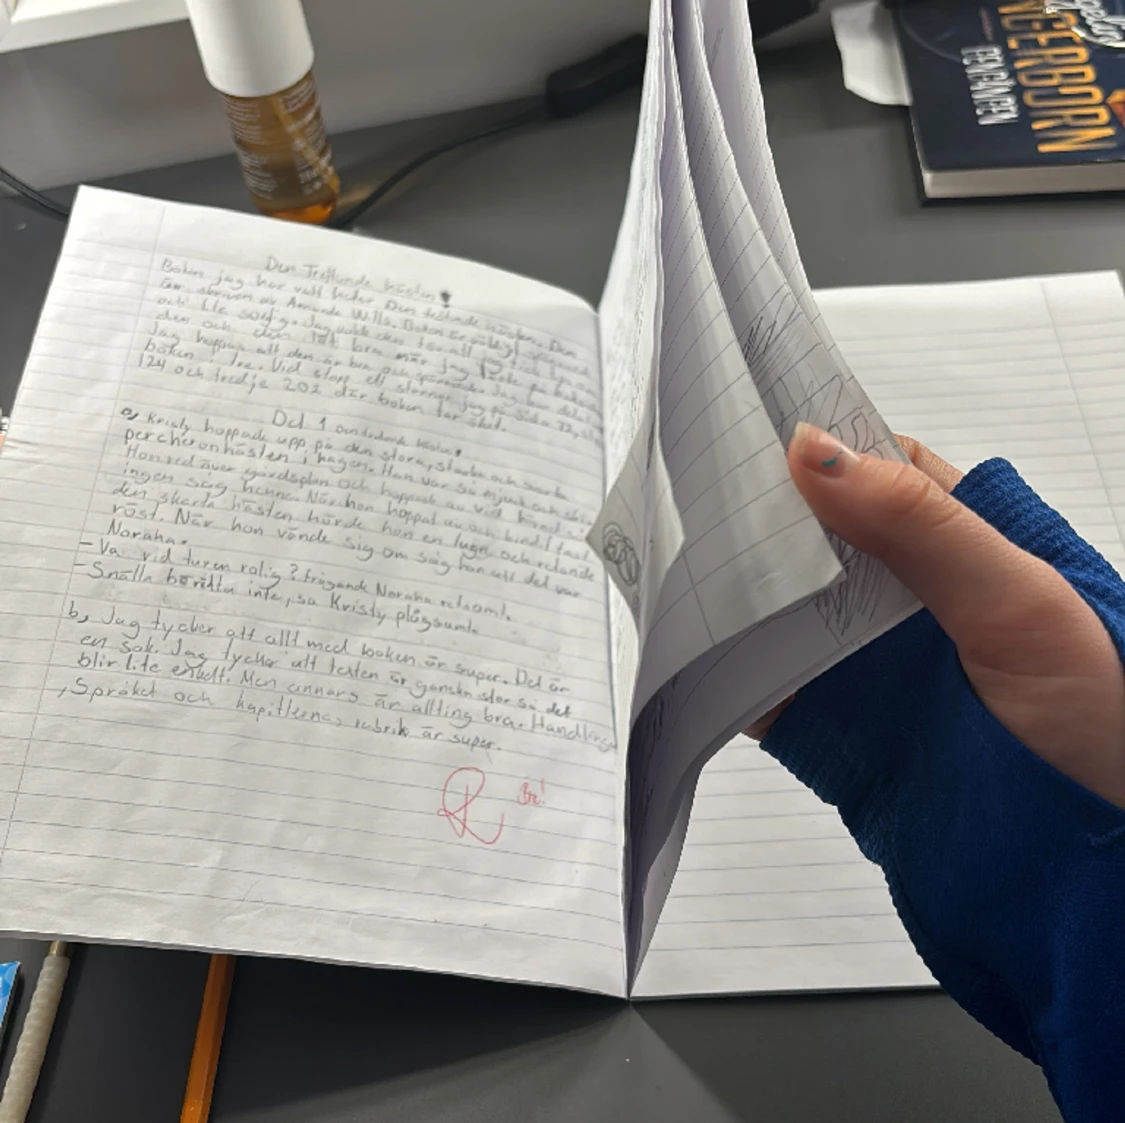 Den Trettonde hästen!
Boken jag har valt heter Den trettonde hästen. Den
är skriven av Amanda Wills. Boken är väldigt spännande
och lite sorglig. Jag valde den för att jag
den och den lät bra när jag läste på baksidan
Jag hoppas att den är bra och spännande. Jag har delat in
boken i tre. Vid stopp ett stannar jag på sida 72,
124 och tredje 202 där boken tar slut.
Del 1 den trettonde hästen!
a, Kristy hoppade upp på den stora, starka och svarta
percheronhästen i hagen. Han var så mjuk och skön
Hon red över gårdsplan och hoppade av vid
ingen såg henne. När hon hoppat av och bindit fast
den skarta hästen hörde hon en lugn och retande
röst. När hon vände sig om såg hon att det var
Noraha.
- Va, rid turen rolig? frågande Noraha retsamt.
- Snälla berätta inte, sa Kristy plågsamt.
b, Jag tycker att allt med boken är super. Det är
en sak. Jag tycker att texten är ganska stor så det
blir lite enkelt. Men annars är allting bra. Handlingen
, Språket och kapitlerna, rubrik är super.
R Bra!
FERBORN